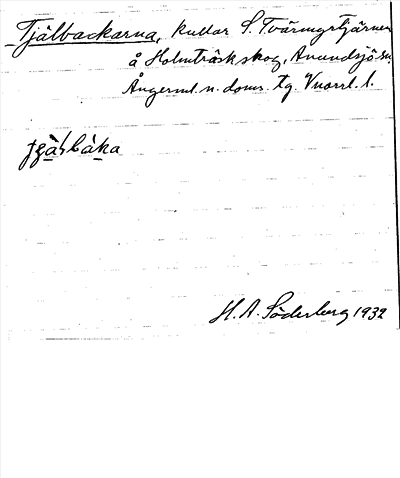 Tjälbackarna, kullar S. Tväringstjärnen
å Holmträsk skog, Anundsjö sn
Ångerml. n. doms. tg. Vnorrl. l.
H. A. Söderberg 1932